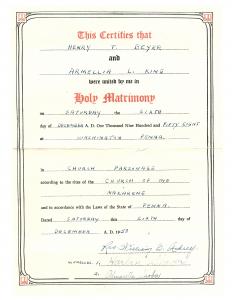 This Certifies that
HENRY T. BEYER
and
ARMELLIA L. KING
were united by me in
Holy Matrimony
on SATURDAY the SIXTH
day of DECEMBER A. D. One Thousand Nine Hundred and FIFTY EIGHT
at WASHINGTON PENNA.
in CHURCH PARSONAGE
according to the rites of the CHURCH OF THE
NAZARENE
and in accordance with the Laws of the State of PENNA.
Dated SATURDAY this SIXTH day of
DECEMBER A. D. 1958
Rev. William
WITNESSES